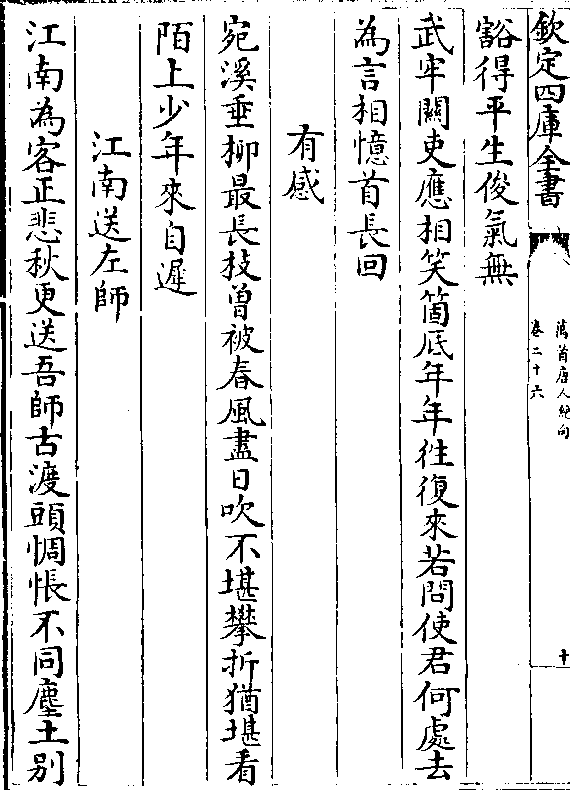 欽定四庫全書
萬首唐人絶句
卷二十六
十
豁得平生俊氣無
武牢關吏應相笑箇底年年往復來若問使君何處去
為言相憶首長回
有感
宛溪垂柳最長枝曾被春風盡日吹不堪攀折猶堪看
陌上少年來自遲
江南送左師
江南為客正悲秋更送吾師古渡頭惆悵不同塵土别